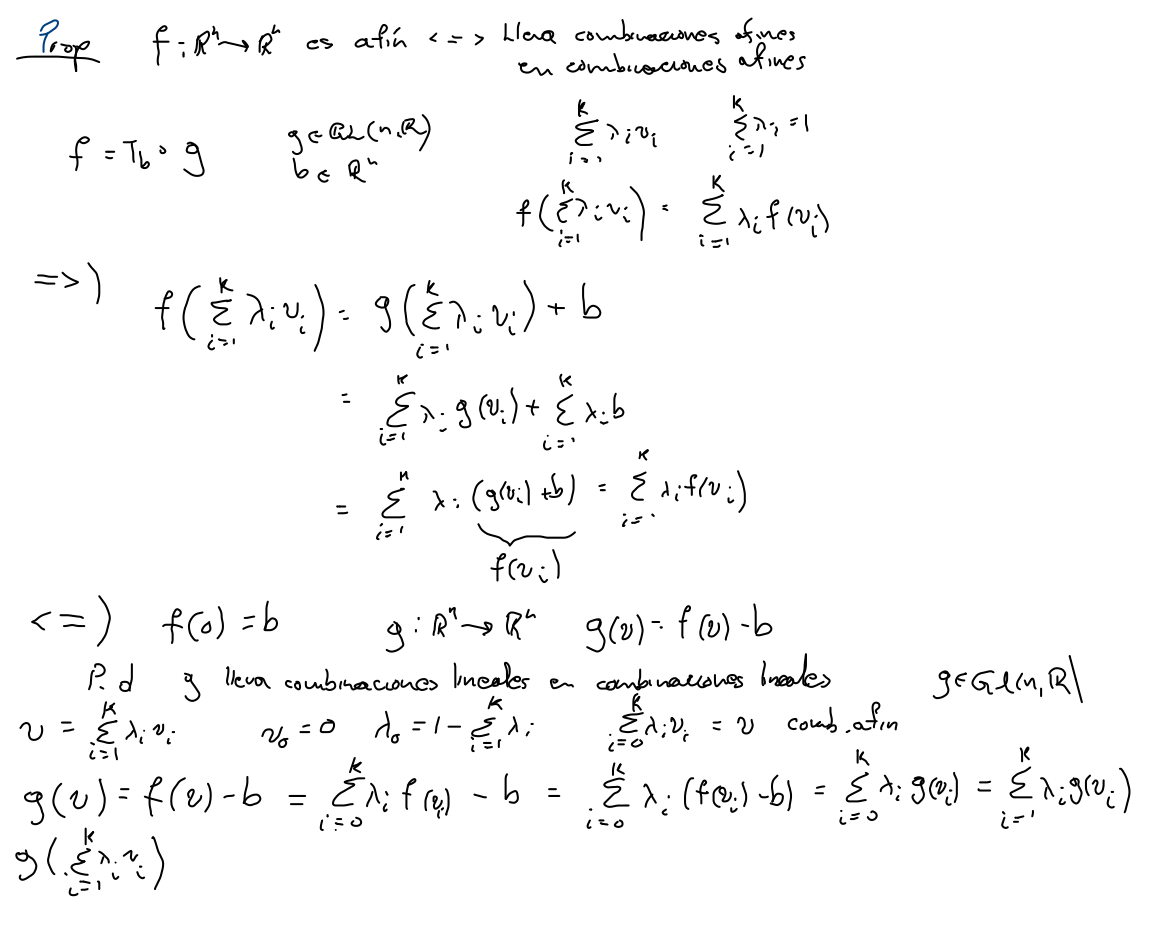 Prop f : ℝⁿ → ℝⁿ es afín <=> Lleva combinaciones afines
en combinaciones afines
f = T_b ∘ g g ∈ GL(n,ℝ) b ∈ ℝⁿ ∑_{i=1}^{K} λ_i v_i ∑_{i=1}^{K} λ_i = 1
f(∑_{i=1}^{K} λ_i v_i) = ∑_{i=1}^{K} λ_i f(v_i)
=>) f(∑_{i=1}^{K} λ_i v_i) = g(∑_{i=1}^{K} λ_i v_i) + b
= ∑_{i=1}^{K} λ_i g(v_i) + ∑_{i=1}^{K} λ_i b
= ∑_{i=1}^{n} λ_i (g(v_i) + b) = ∑_{i=1}^{K} λ_i f(v_i)
f(v_i)
<=) f(0) = b g : ℝⁿ → ℝⁿ g(v) = f(v) - b
P.d g lleva combinaciones lineales en combinaciones lineales g ∈ Gl(n,ℝ)
v = ∑_{i=1}^{K} λ_i v_i v_0 = 0 λ_0 = 1 - ∑_{i=1}^{K} λ_i ∑_{i=0}^{K} λ_i v_i = v comb. afin
g(v) = f(v) - b = ∑_{i=0}^{K} λ_i f(v_i) - b = ∑_{i=0}^{K} λ_i (f(v_i) - b) = ∑_{i=0}^{K} λ_i g(v_i) = ∑_{i=1}^{K} λ_i g(v_i)
g(∑_{i=1}^{K} λ_i v_i)